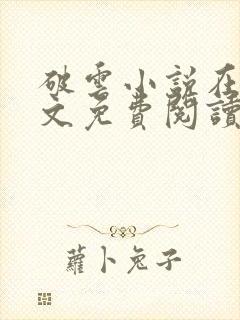 破雲小說在
文免費閱讀
蘿卜兔子